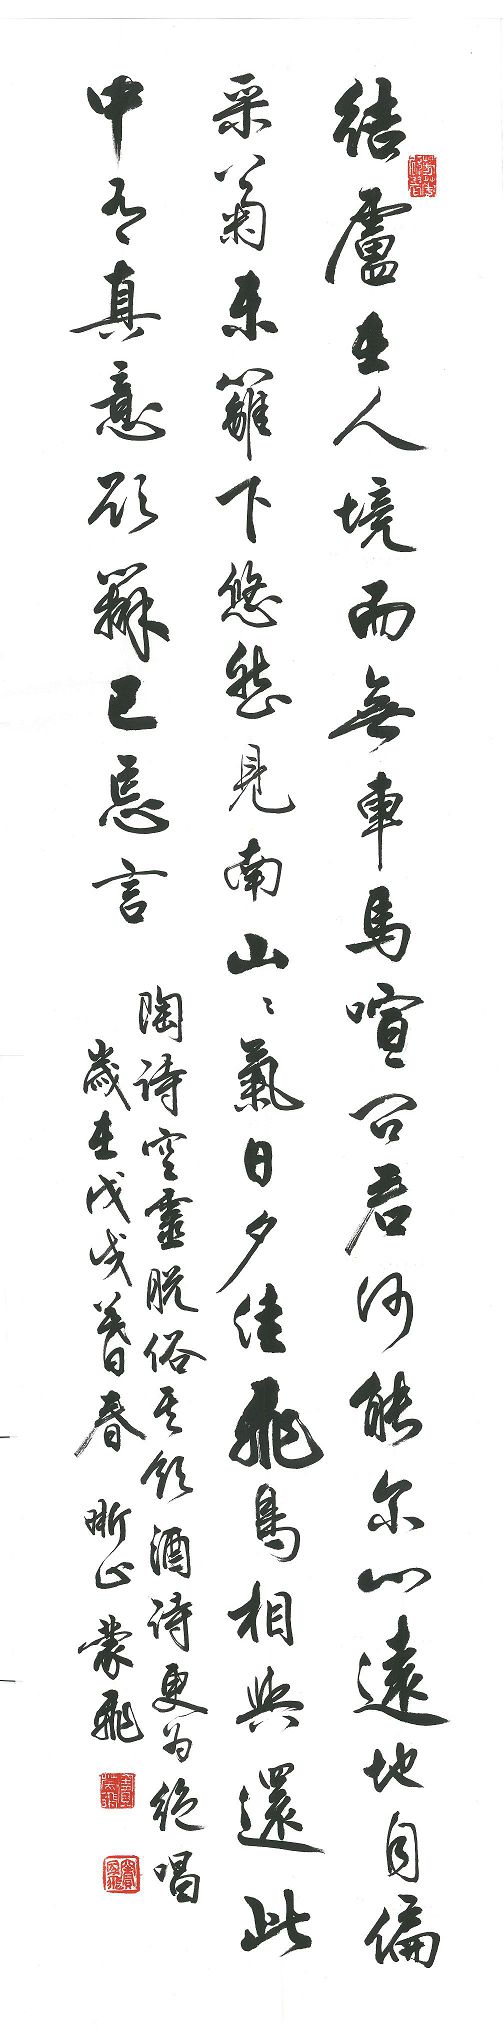 結廬在人境而無車馬喧問君何能尔心遠地自偏
采菊東籬下悠然見南山〻氣日夕佳飛鳥相與還此
中有真意欲辯已忘言
陶詩空靈脱俗其飲酒詩更为絶唱
歲在戊戌暮春 晰山蒙飛